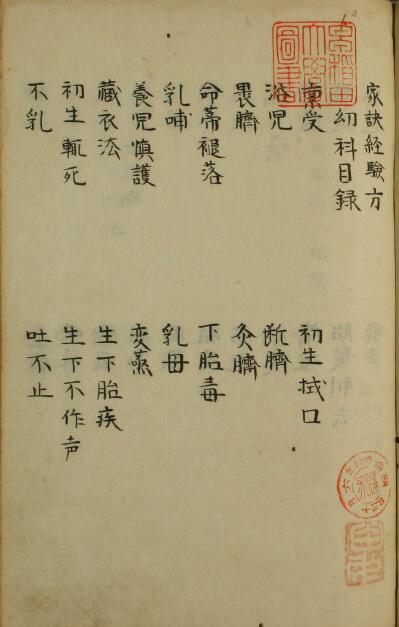 家訣経驗方
幼科目録
稟受
初生拭口
浴児
断臍
裹臍
灸臍
命蒂褪落
下胎毒
乳哺
乳母
養児慎護
変蒸
蔵衣法
生下胎疾
初生輒死
生下不作声
不乳
吐不止
早稲田大學圖書